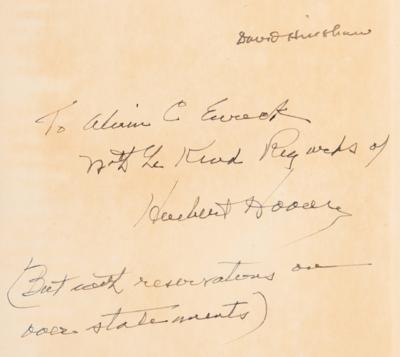 David Hinshaw
To Alvin C Eurech
With the Kind Regards of
Herbert Hoover
(But with reservations on
over statements)